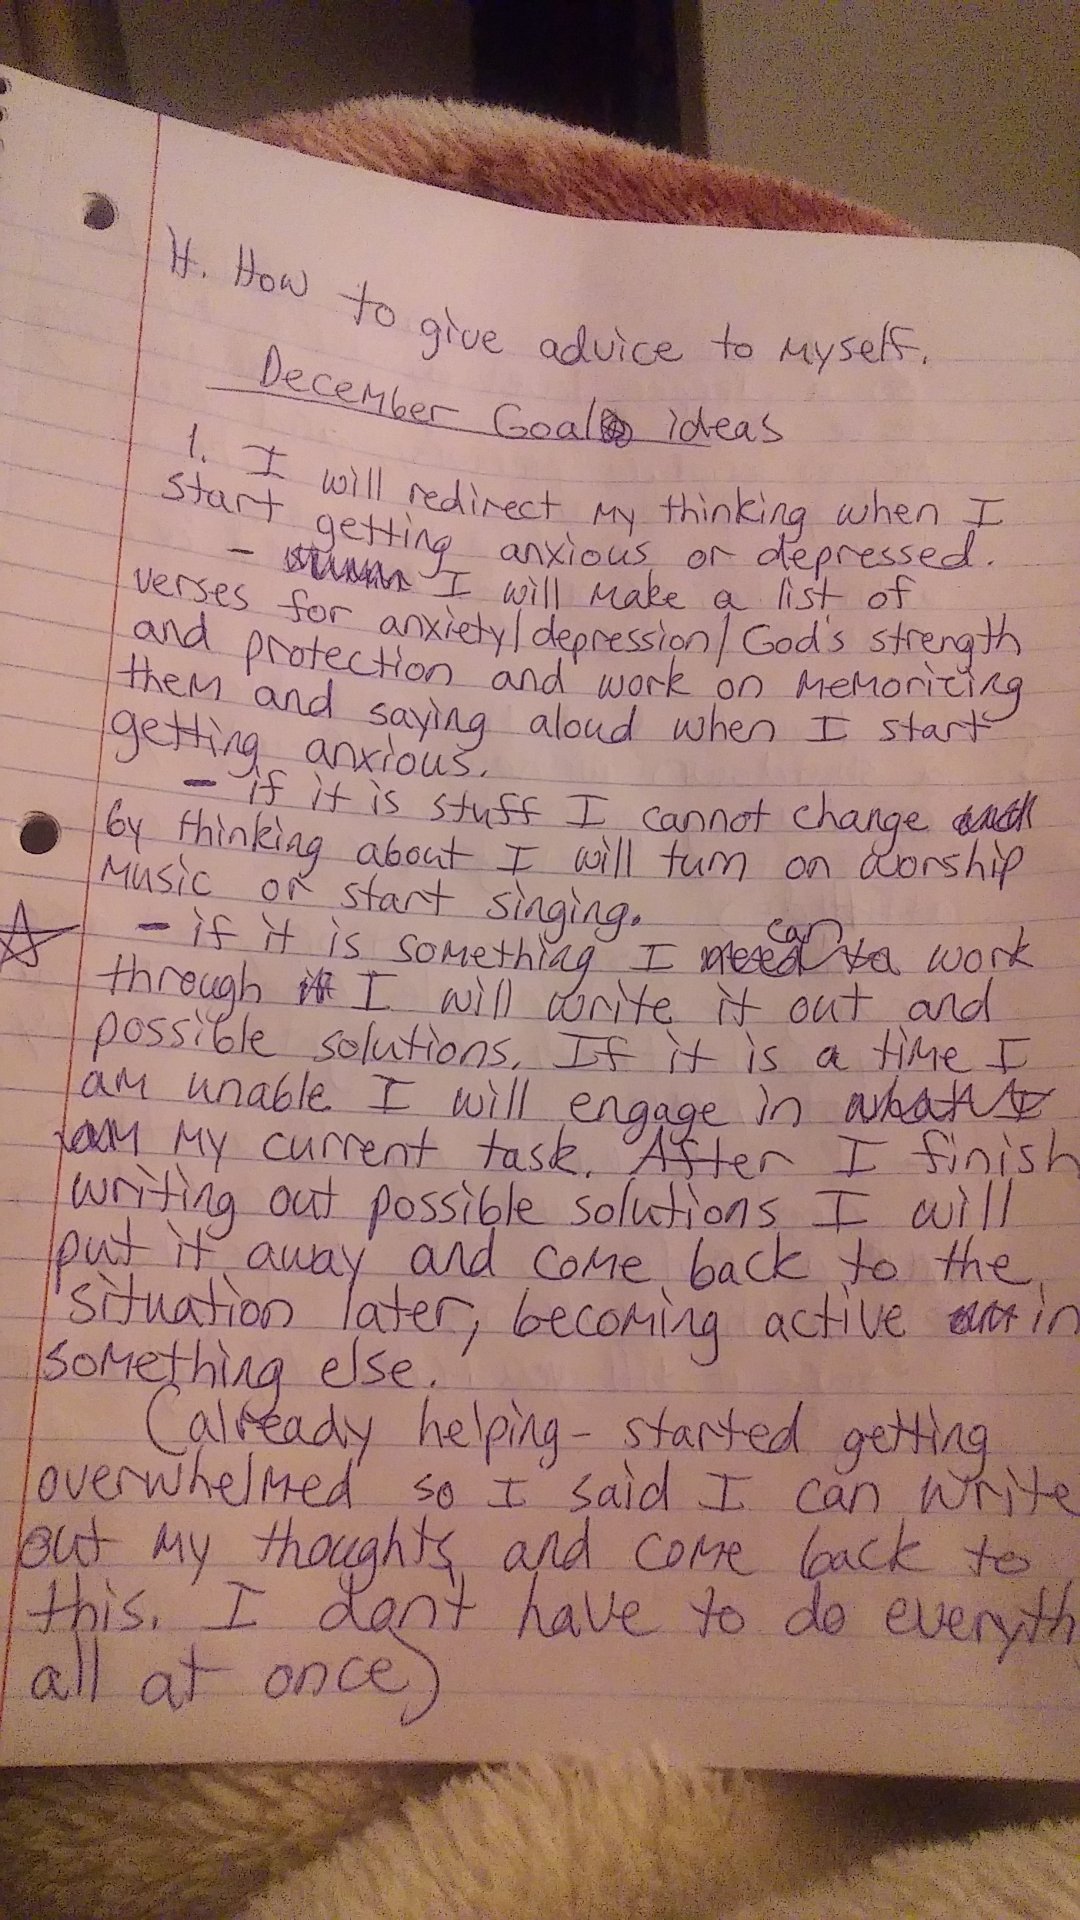 H. How to give advice to myself.
December Goal ideas
1. I will redirect my thinking when I
start getting anxious or depressed.
- I will make a list of
verses for anxiety/depression/God's strength
and protection and work on memorizing
them and saying aloud when I start
getting anxious.
- if it is stuff I cannot change
by thinking about I will turn on worship
music or start singing.
- if it is something I can work
through I will write it out and
possible solutions. If it is a time I
am unable I will engage in
my current task. After I finish
writing out possible solutions I will
put it away and come back to the
situation later, becoming active in
something else.
(already helping - started getting
overwhelmed so I said I can write
out my thoughts and come back to
this. I dont have to do everyth
all at once)